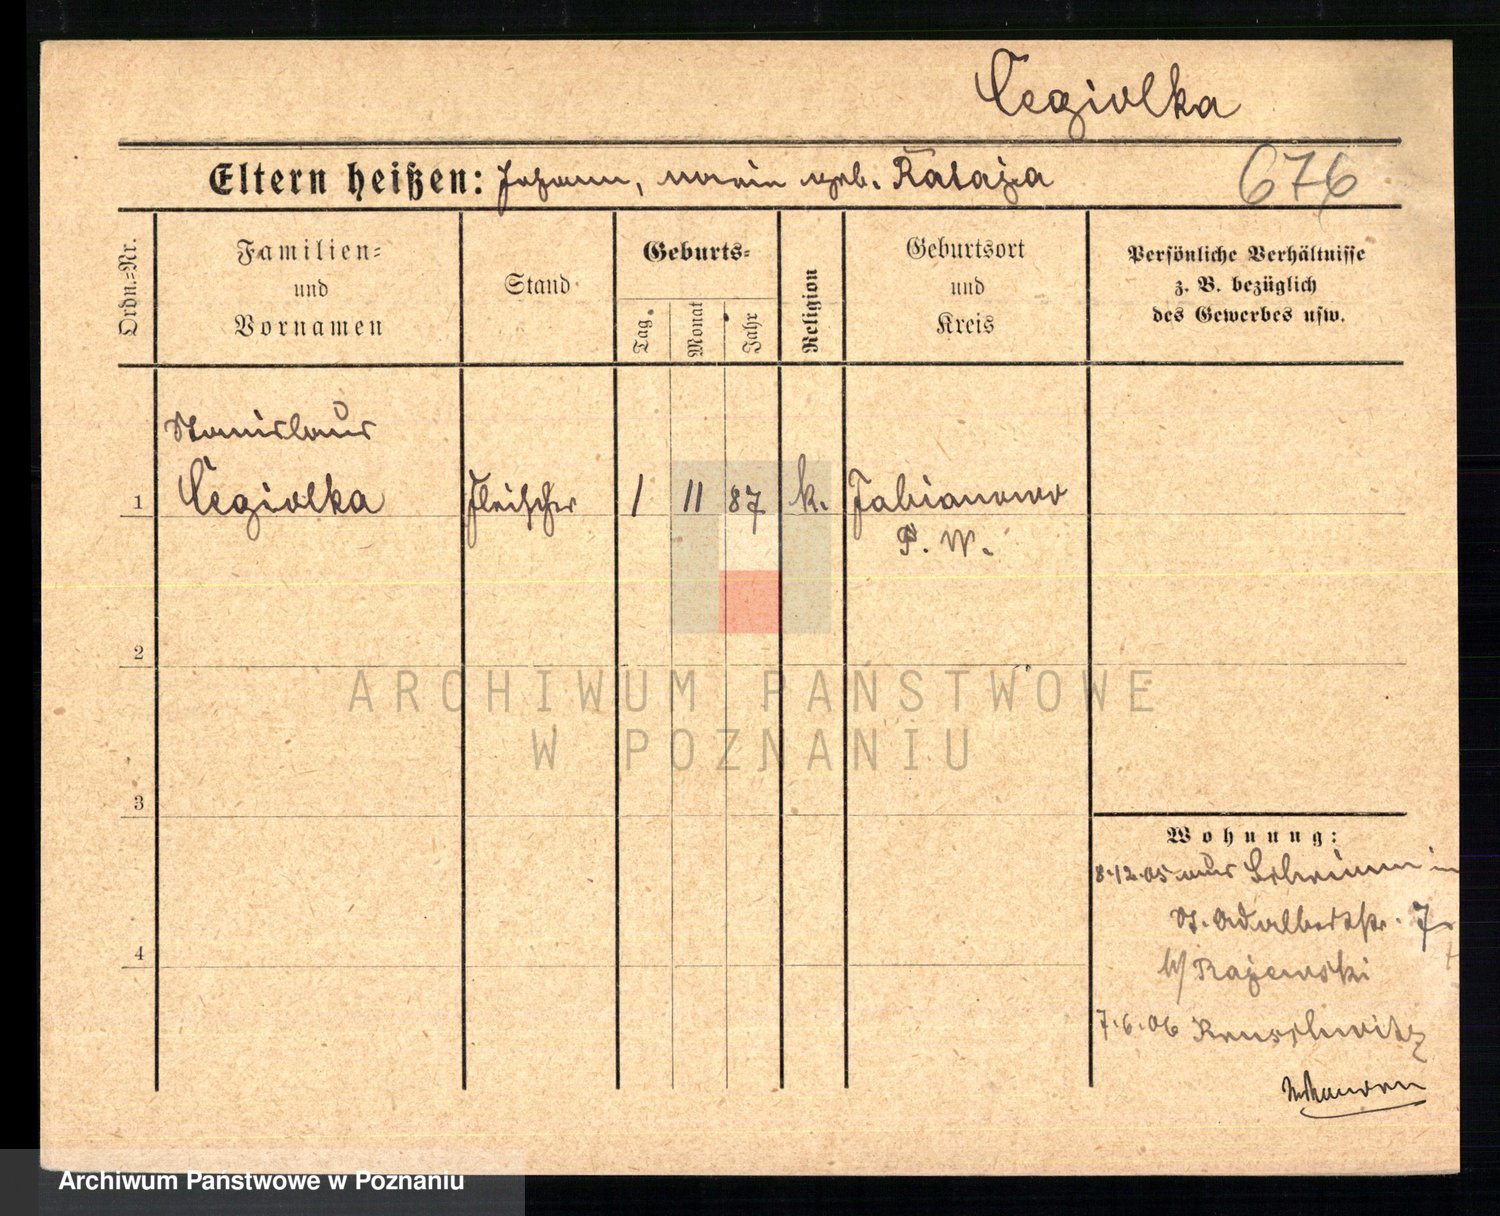 Cegiolka
Eltern heißen: Johann, Maria geb. Rataja
676
Ordn.=Nr.
Familien=
und
Vornamen
Stand
Geburts=
Tag.
Monat
Jahr
Religion
Geburtsort
und
Kreis
Persönliche Verhältnisse
z. B. bezüglich
des Gewerbes usw.
Stanislaus
1 Cegiolka Fleischer 1 11 87 k. Fabianowo
P. W.
2
3
4
ARCHIWUM PAŃSTWOWE
W POZNANIU
Wohnung:
8.12.05 aus Schrimm in
St. Adalbertstr. 7
b/ Rajewski
7.6.06
Archiwum Państwowe w Poznaniu